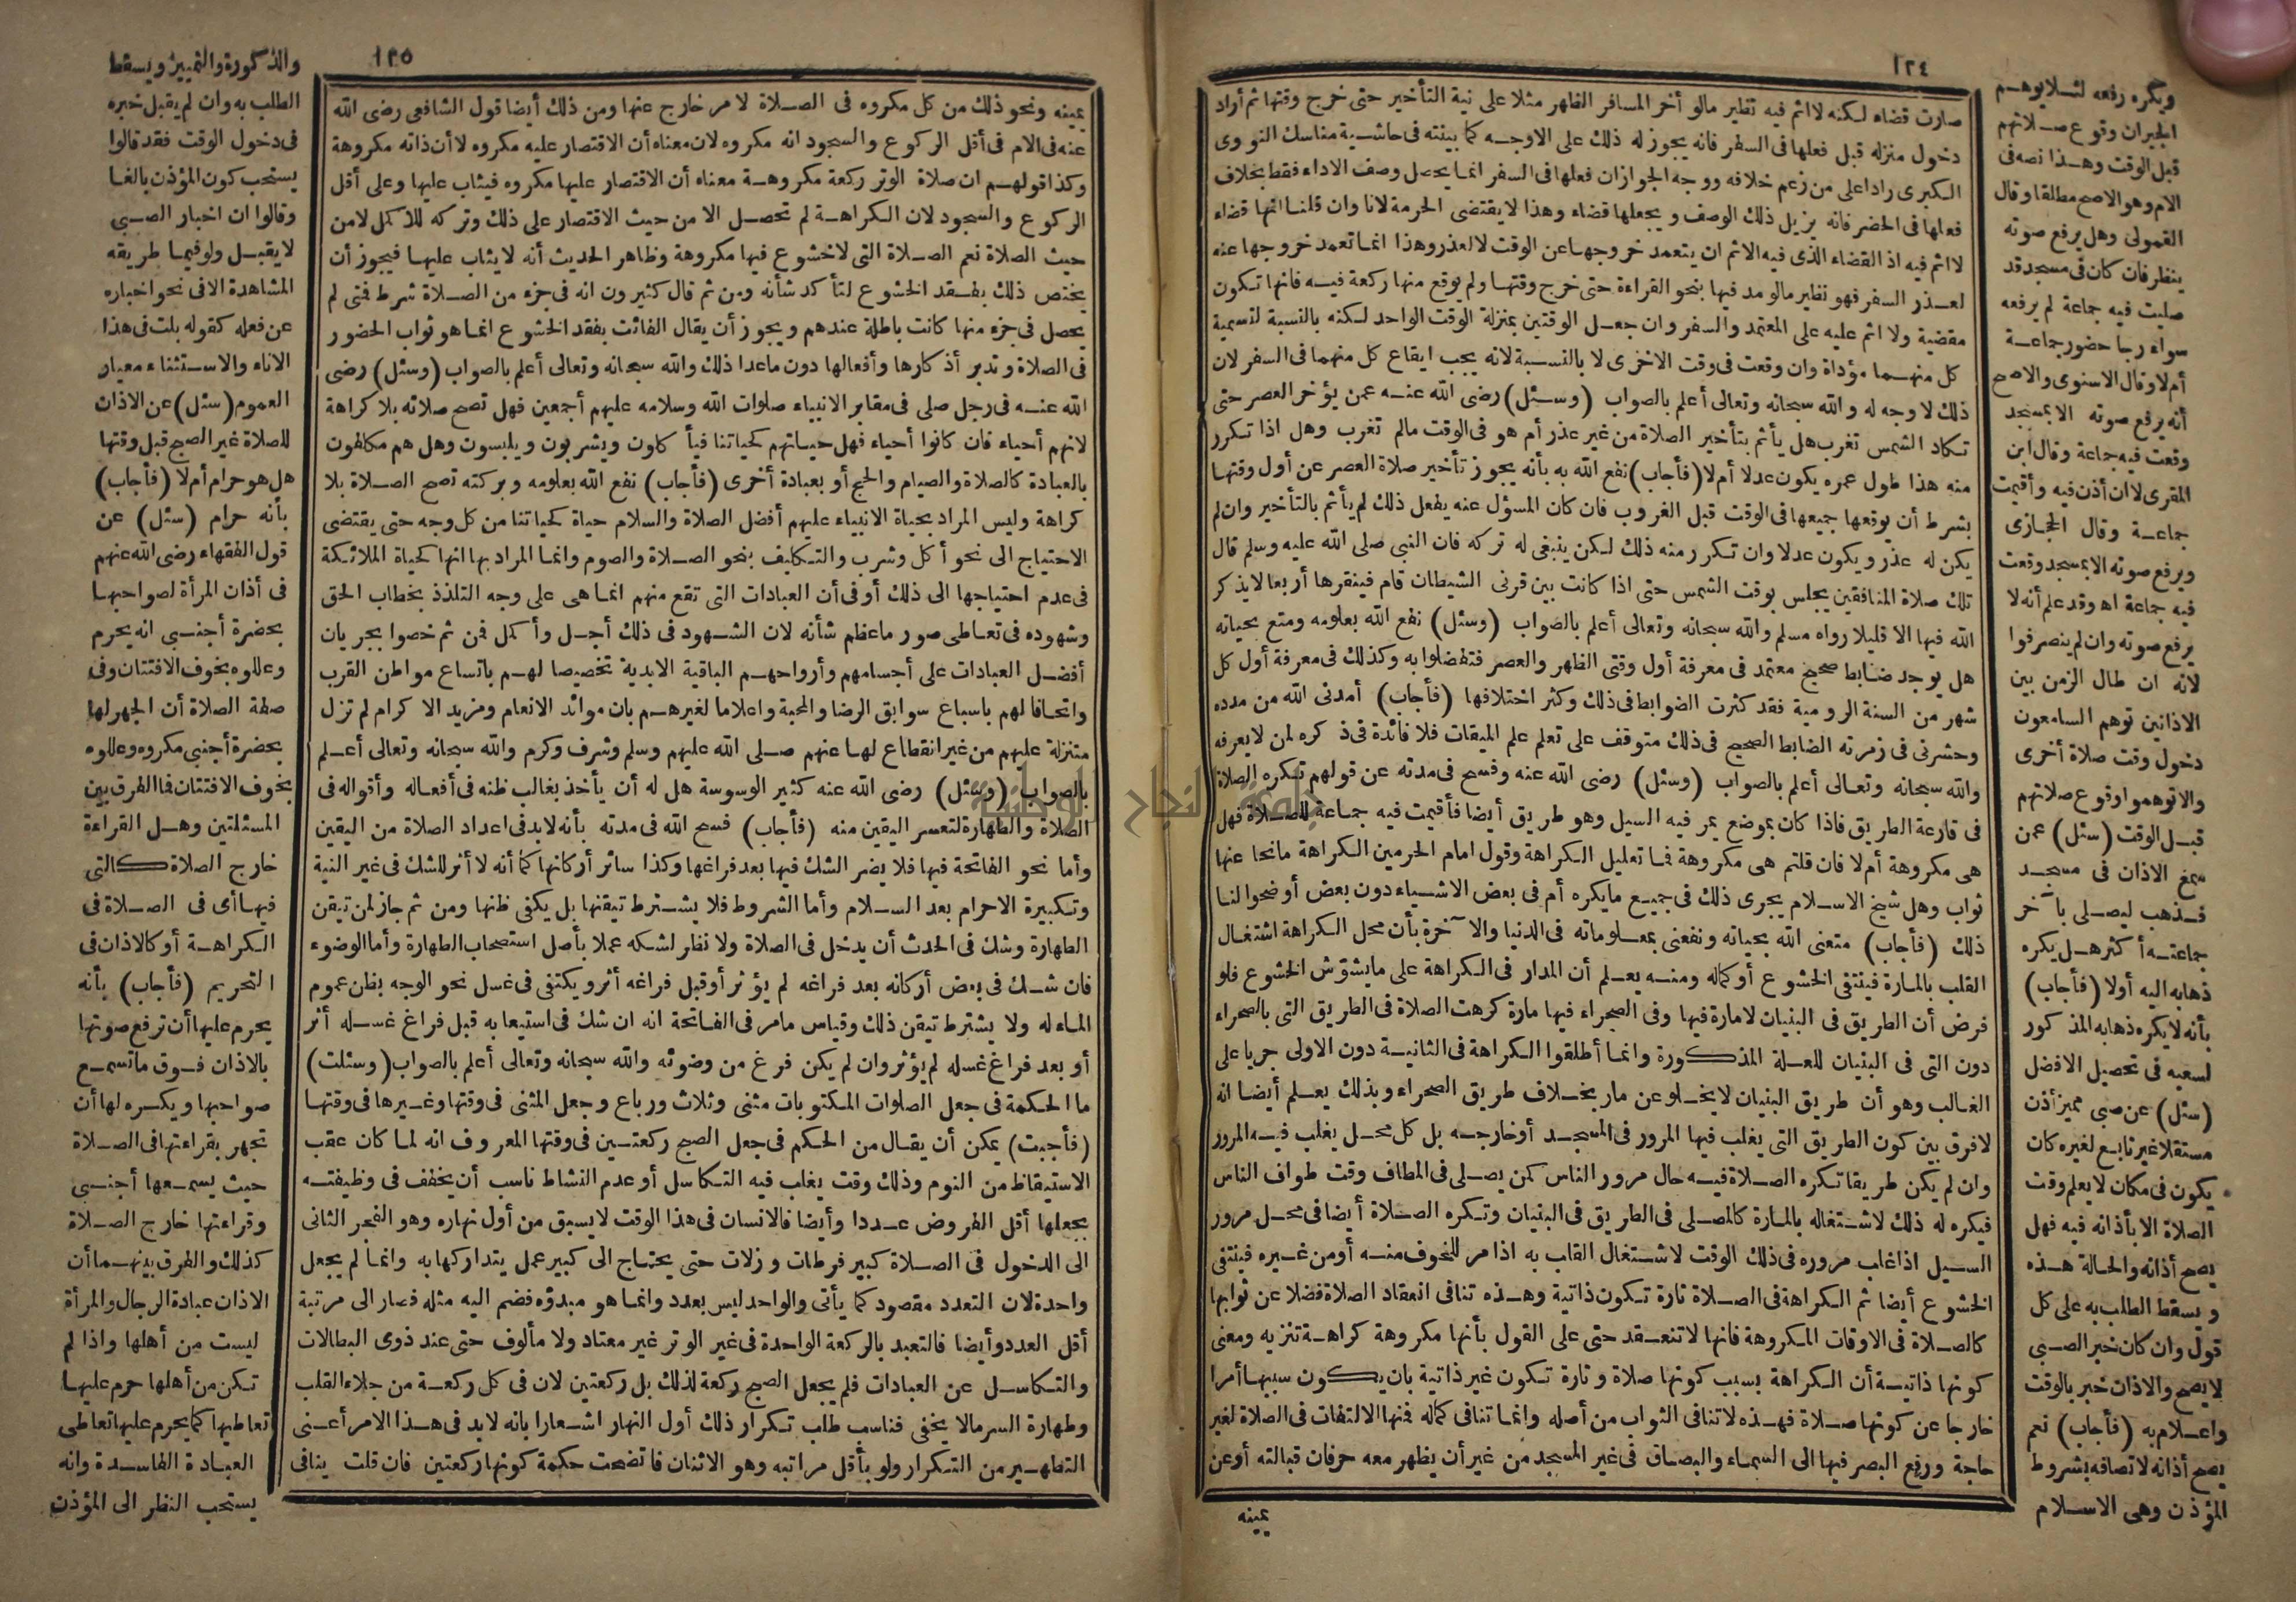 ١٢٤
صارت قضاء لكنه لا اثم فيه نظير مالو أخر المسافر الظهر مثلا على نية التأخير حتى خرج وقتها ثم أراد
دخول منزله قبل فعلها فى السفر فانه يجوز له ذلك على الاوجه كما بينته فى حاشية مناسك النووى
الكبرى رادا على من زعم خلافه ووجه الجواز ان فعلها فى السفر انما يحصل وصف الاداء فقط بخلاف
فعلها فى الحضر فانه يزيل ذلك الوصف ويجعلها قضاء وهذا لا يقتضى الحرمة لانا وان قلنا انها قضاء
لا اثم فيه اذ القضاء الذى فيه الاثم ان يتعمد خروجها عن الوقت لا لعذر وهذا انما تعمد خروجها عنه
لعذر السفر فهو نظير مالو مد فيها بنحو القراءة حتى خرج وقتها ولم يوقع منها ركعة فيه فانها تكون
مقضية ولا اثم عليه على المعتمد والسفر وان جعل الوقتين بمنزلة الوقت الواحد لكنه بالنسبة لتسمية
كل منهما مؤداة وان وقعت فى وقت الاخرى لا بالنسبة لانه يجب ايقاع كل منهما فى السفر لان
ذلك لا وجه له والله سبحانه وتعالى أعلم بالصواب (وسئل) رضى الله عنه عمن يؤخر العصر حتى
تكاد الشمس تغرب هل يأثم بتأخير الصلاة من غير عذر أم هو فى الوقت مالم تغرب وهل اذا تكرر
منه هذا طول عمره يكون عدلا أم لا (فأجاب) نفع الله به بأنه يجوز تأخير صلاة العصر عن أول وقتها
بشرط أن يوقعها جميعها فى الوقت قبل الغروب فان كان المسؤل عنه يفعل ذلك لم يأثم بالتأخير وان لم
يكن له عذر ويكون عدلا وان تكرر منه ذلك لكن ينبغى له تركه فان النبى صلى الله عليه وسلم قال
تلك صلاة المنافقين يجلس يوقت الشمس حتى اذا كانت بين قرنى الشيطان قام فينقرها أربعا لا يذكر
الله فيها الا قليلا رواه مسلم والله سبحانه وتعالى أعلم بالصواب (وسئل) نفع الله بعلومه ومتع بحياته
هل يوجد ضابط صحيح معتمد فى معرفة أول وقتى الظهر والعصر فتفضلوا به وكذلك فى معرفة أول كل
شهر من السنة الرومية فقد كثرت الضوابط فى ذلك وكثر اختلافها (فأجاب) أمدنى الله من مدده
وحشرنى فى زمرته الضابط الصحيح فى ذلك متوقف على تعلم علم الميقات فلا فائدة فى ذكره لمن لا يعرفه
والله سبحانه وتعالى أعلم بالصواب (وسئل) رضى الله عنه وفسح فى مدته عن قولهم تكره الصلاة
فى قارعة الطريق فاذا كان بموضع يمر فيه السيل وهو طريق أيضا فأقيمت فيه جماعة للصلاة فهل
هى مكروهة أم لا فان قلتم هى مكروهة فما تعليل الكراهة وقول امام الحرمين الكراهة مانحا عنها
ثواب وهل شيخ الاسلام يجرى ذلك فى جميع مايكره أم فى بعض الاشياء دون بعض أوضحوا لنا
ذلك (فأجاب) متعنى الله بحياته ونفعنى بمعلوماته فى الدنيا والآخرة بأن محل الكراهة اشتغال
القلب بالمارة فينتفى الخشوع أو كماله ومنه يعلم أن المدار فى الكراهة على مايشوش الخشوع فلو
فرض أن الطريق فى البنيان لامارة فيها وفى الصحراء فيها مارة كرهت الصلاة فى الطريق التى بالصحراء
دون التى فى البنيان للعلة المذكورة وانما أطلقوا الكراهة فى الثانية دون الاولى جريا على
الغالب وهو أن طريق البنيان لا يخلو عن مار بخلاف طريق الصحراء وبذلك يعلم أيضا انه
لا فرق بين كون الطريق التى يغلب فيها المرور فى المسجد أو خارجه بل كل محل يغلب فيه المرور
وان لم يكن طريقا تكره الصلاة فيه حال مرور الناس كمن يصلى فى المطاف وقت طواف الناس
فيكره له ذلك لاشتغاله بالمارة كالمصلى فى الطريق فى البنيان وتكره الصلاة أيضا فى محل مرور
السيل اذا غلب مروره فى ذلك الوقت لاشتغال القلب به اذا مر للخوف منه أو من غيره فينتفى
الخشوع أيضا ثم الكراهة فى الصلاة تارة تكون ذاتية وهذه تنافى انعقاد الصلاة فضلا عن ثوابها
كالصلاة فى الاوقات المكروهة فانها لا تنعقد حتى على القول بأنها مكروهة كراهة تنزيه ومعنى
كونها ذاتية أن الكراهة بسبب كونها صلاة وتارة تكون غير ذاتية بان يكون سببها أمرا
خارجا عن كونها صلاة فهذه لا تنافى الثواب من أصله وانما تنافى كماله فمنها الالتفات فى الصلاة لغير
حاجة ورفع البصر فيها الى السماء والبصاق فى غير المسجد من غير أن يظهر معه حرفان قبالته أو عن
يمينه
ويكره رفعه لئلا يوهم
الجيران وقوع صلاتهم
قبل الوقت وهذا نصه فى
الام وهو الاصح مطلقا وقال
القمولى وهل يرفع صوته
ينظر فان كان فى مسجد قد
صليت فيه جماعة لم يرفعه
سواء رجا حضور جماعة
أم لا وقال الاسنوى والاصح
أنه يرفع صوته الا بمسجد
وقعت فيه جماعة وقال ابن
المقرى لا ان أذن فيه وأقيمت
جماعة وقال الحجازى
ويرفع صوته الا بمسجد وقعت
فيه جماعة اه وقد علم أنه لا
يرفع صوته وان لم ينصرفوا
لانه ان طال الزمن بين
الاذانين توهم السامعون
دخول وقت صلاة أخرى
والا توهموا وقوع صلاتهم
قبل الوقت (سئل) عمن
سمع الاذان فى مسجد
فذهب ليصلى بآخر
جماعته أكثر هل يكره
ذهابه اليه أولا (فأجاب)
بأنه لا يكره ذهابه المذكور
لسعيه فى تحصيل الافضل
(سئل) عن صبى مميز أذن
مستقلا غير تابع لغيره كان
يكون فى مكان لا يعلم وقت
الصلاة الا بأذانه فيه فهل
يصح أذانه والحالة هذه
ويسقط الطلب به على كل
قول وان كان خبر الصبى
لا يصح والاذان خبر بالوقت
واعلام به (فأجاب) نعم
يصح أذانه لاتصافه بشروط
المؤذن وهى الاسلام
١٢٥
يمينه ونحو ذلك من كل مكروه فى الصلاة لامر خارج عنها ومن ذلك أيضا قول الشافعى رضى الله
عنه فى الام فى أقل الركوع والسجود انه مكروه لان معناه أن الاقتصار عليه مكروه لا أن ذاته مكروهة
وكذا قولهم ان صلاة الوتر ركعة مكروهة معناه أن الاقتصار عليها مكروه فيثاب عليها وعلى أقل
الركوع والسجود لان الكراهة لم تحصل الا من حيث الاقتصار على ذلك وتركه للاكمل لا من
حيث الصلاة نعم الصلاة التى لا خشوع فيها مكروهة وظاهر الحديث أنه لا يثاب عليها فيجوز أن
يختص ذلك بفقد الخشوع لتأكد شأنه ومن ثم قال كثيرون انه فى جزء من الصلاة شرط فمتى لم
يحصل فى جزء منها كانت باطلة عندهم ويجوز أن يقال الفائت بفقد الخشوع انما هو ثواب الحضور
فى الصلاة وتدبر أذكارها وأفعالها دون ماعدا ذلك والله سبحانه وتعالى أعلم بالصواب (وسئل) رضى
الله عنه فى رجل صلى فى مقابر الانبياء صلوات الله وسلامه عليهم أجمعين فهل تصح صلاته بلا كراهة
لانهم أحياء فان كانوا أحياء فهل حياتهم كحياتنا فيأكلون ويشربون ويلبسون وهل هم مكلفون
بالعبادة كالصلاة والصيام والحج أو بعبادة أخرى (فأجاب) نفع الله بعلومه وبركته تصح الصلاة بلا
كراهة وليس المراد بحياة الانبياء عليهم أفضل الصلاة والسلام حياة كحياتنا من كل وجه حتى يقتضى
الاحتياج الى نحو أكل وشرب والتكليف بنحو الصلاة والصوم وانما المراد بها انها كحياة الملائكة
فى عدم احتياجها الى ذلك أو فى أن العبادات التى تقع منهم انما هى على وجه التلذذ بخطاب الحق
وشهوده فى تعاطى صور ماعظم شأنه لان الشهود فى ذلك أجل وأكمل فمن ثم خصوا بجريان
أفضل العبادات على أجسامهم وأرواحهم الباقية الابدية تخصيصا لهم باتساع مواطن القرب
واتحافا لهم باسباغ سوابق الرضا والمحبة واعلاما لغيرهم بان موائد الانعام ومزيد الاكرام لم تزل
متنزلة عليهم من غير انقطاع لها عنهم صلى الله عليهم وسلم وشرف وكرم والله سبحانه وتعالى أعلم
بالصواب (وسئل) رضى الله عنه كثير الوسوسة هل له أن يأخذ بغالب ظنه فى أفعاله وأقواله فى
الصلاة والطهارة لتعسر اليقين منه (فأجاب) فسح الله فى مدته بأنه لابد فى اعداد الصلاة من اليقين
وأما نحو الفاتحة فيها فلا يضر الشك فيها بعد فراغها وكذا سائر أركانها كما أنه لا أثر للشك فى غير النية
وتكبيرة الاحرام بعد السلام وأما الشروط فلا يشترط تيقنها بل يكفى ظنها ومن ثم جاز لمن تيقن
الطهارة وشك فى الحدث أن يدخل فى الصلاة ولا نظر لشكه عملا بأصل استصحاب الطهارة وأما الوضوء
فان شك فى بعض أركانه بعد فراغه لم يؤثر أو قبل فراغه أثر ويكتفى فى غسل نحو الوجه بظن عموم
الماء له ولا يشترط تيقن ذلك وقياس مامر فى الفاتحة انه ان شك فى استيعابه قبل فراغ غسله أثر
أو بعد فراغ غسله لم يؤثر وان لم يكن فرغ من وضوئه والله سبحانه وتعالى أعلم بالصواب (وسئلت)
ما الحكمة فى جعل الصلوات المكتوبات مثنى وثلاث ورباع وجعل المثنى فى وقتها وغيرها فى وقتها
(فأجبت) يمكن أن يقال من الحكم فى جعل الصبح ركعتين فى وقتها المعروف انه لما كان عقب
الاستيقاظ من النوم وذلك وقت يغلب فيه التكاسل أو عدم النشاط ناسب أن يخفف فى وظيفته
بجعلها أقل الفروض عددا وأيضا فالانسان فى هذا الوقت لا يسبق من أول نهاره وهو الفجر الثانى
الى الدخول فى الصلاة كبير فرطات وزلات حتى يحتاج الى كبير عمل يتداركها به وانما لم يجعل
واحدة لان التعدد مقصود كما يأتى والواحد ليس بعدد وانما هو مبدؤه فضم اليه مثله فصار الى مرتبة
أقل العدد وأيضا فالتعبد بالركعة الواحدة فى غير الوتر غير معتاد ولا مألوف حتى عند ذوى البطالات
والتكاسل عن العبادات فلم يجعل الصبح ركعة لذلك بل ركعتين لان فى كل ركعة من جلاء القلب
وطهارة السر مالا يخفى فناسب طلب تكرار ذلك أول النهار اشعارا بانه لابد فى هذا الامر أعنى
التطهير من التكرار ولو بأقل مراتبه وهو الاثنان فاتضحت حكمة كونها ركعتين فان قلت ينافى
والذكورة والتمييز ويسقط
الطلب به وان لم يقبل خبره
فى دخول الوقت فقد قالوا
يستحب كون المؤذن بالغا
وقالوا ان اخبار الصبى
لا يقبل ولو فيما طريقه
المشاهدة الا فى نحو اخباره
عن فعله كقوله بلت فى هذا
الاناء والاستثناء معيار
العموم (سئل) عن الاذان
للصلاة غير الصبح قبل وقتها
هل هو حرام أم لا (فأجاب)
بأنه حرام (سئل) عن
قول الفقهاء رضى الله عنهم
فى أذان المرأة لصواحبها
بحضرة أجنبى انه يحرم
وعللوه بخوف الافتتان وفى
صفة الصلاة أن الجهر لها
بحضرة أجنبى مكروه وعللوه
بخوف الافتتان فما الفرق بين
المسئلتين وهل القراءة
خارج الصلاة كالتى
فيها أى فى الصلاة فى
الكراهة أو كالاذان فى
التحريم (فأجاب) بأنه
يحرم عليها أن ترفع صوتها
بالاذان فوق ماتسمع
صواحبها ويكره لها أن
تجهر بقراءتها فى الصلاة
حيث يسمعها أجنبى
وقراءتها خارج الصلاة
كذلك والفرق بينهما أن
الاذان عبادة الرجال والمرأة
ليست من أهلها واذا لم
تكن من أهلها حرم عليها
تعاطيها كما يحرم عليها تعاطى
العبادة الفاسدة وانه
يستحب النظر الى المؤذن
جامعة النجاح الوطنية